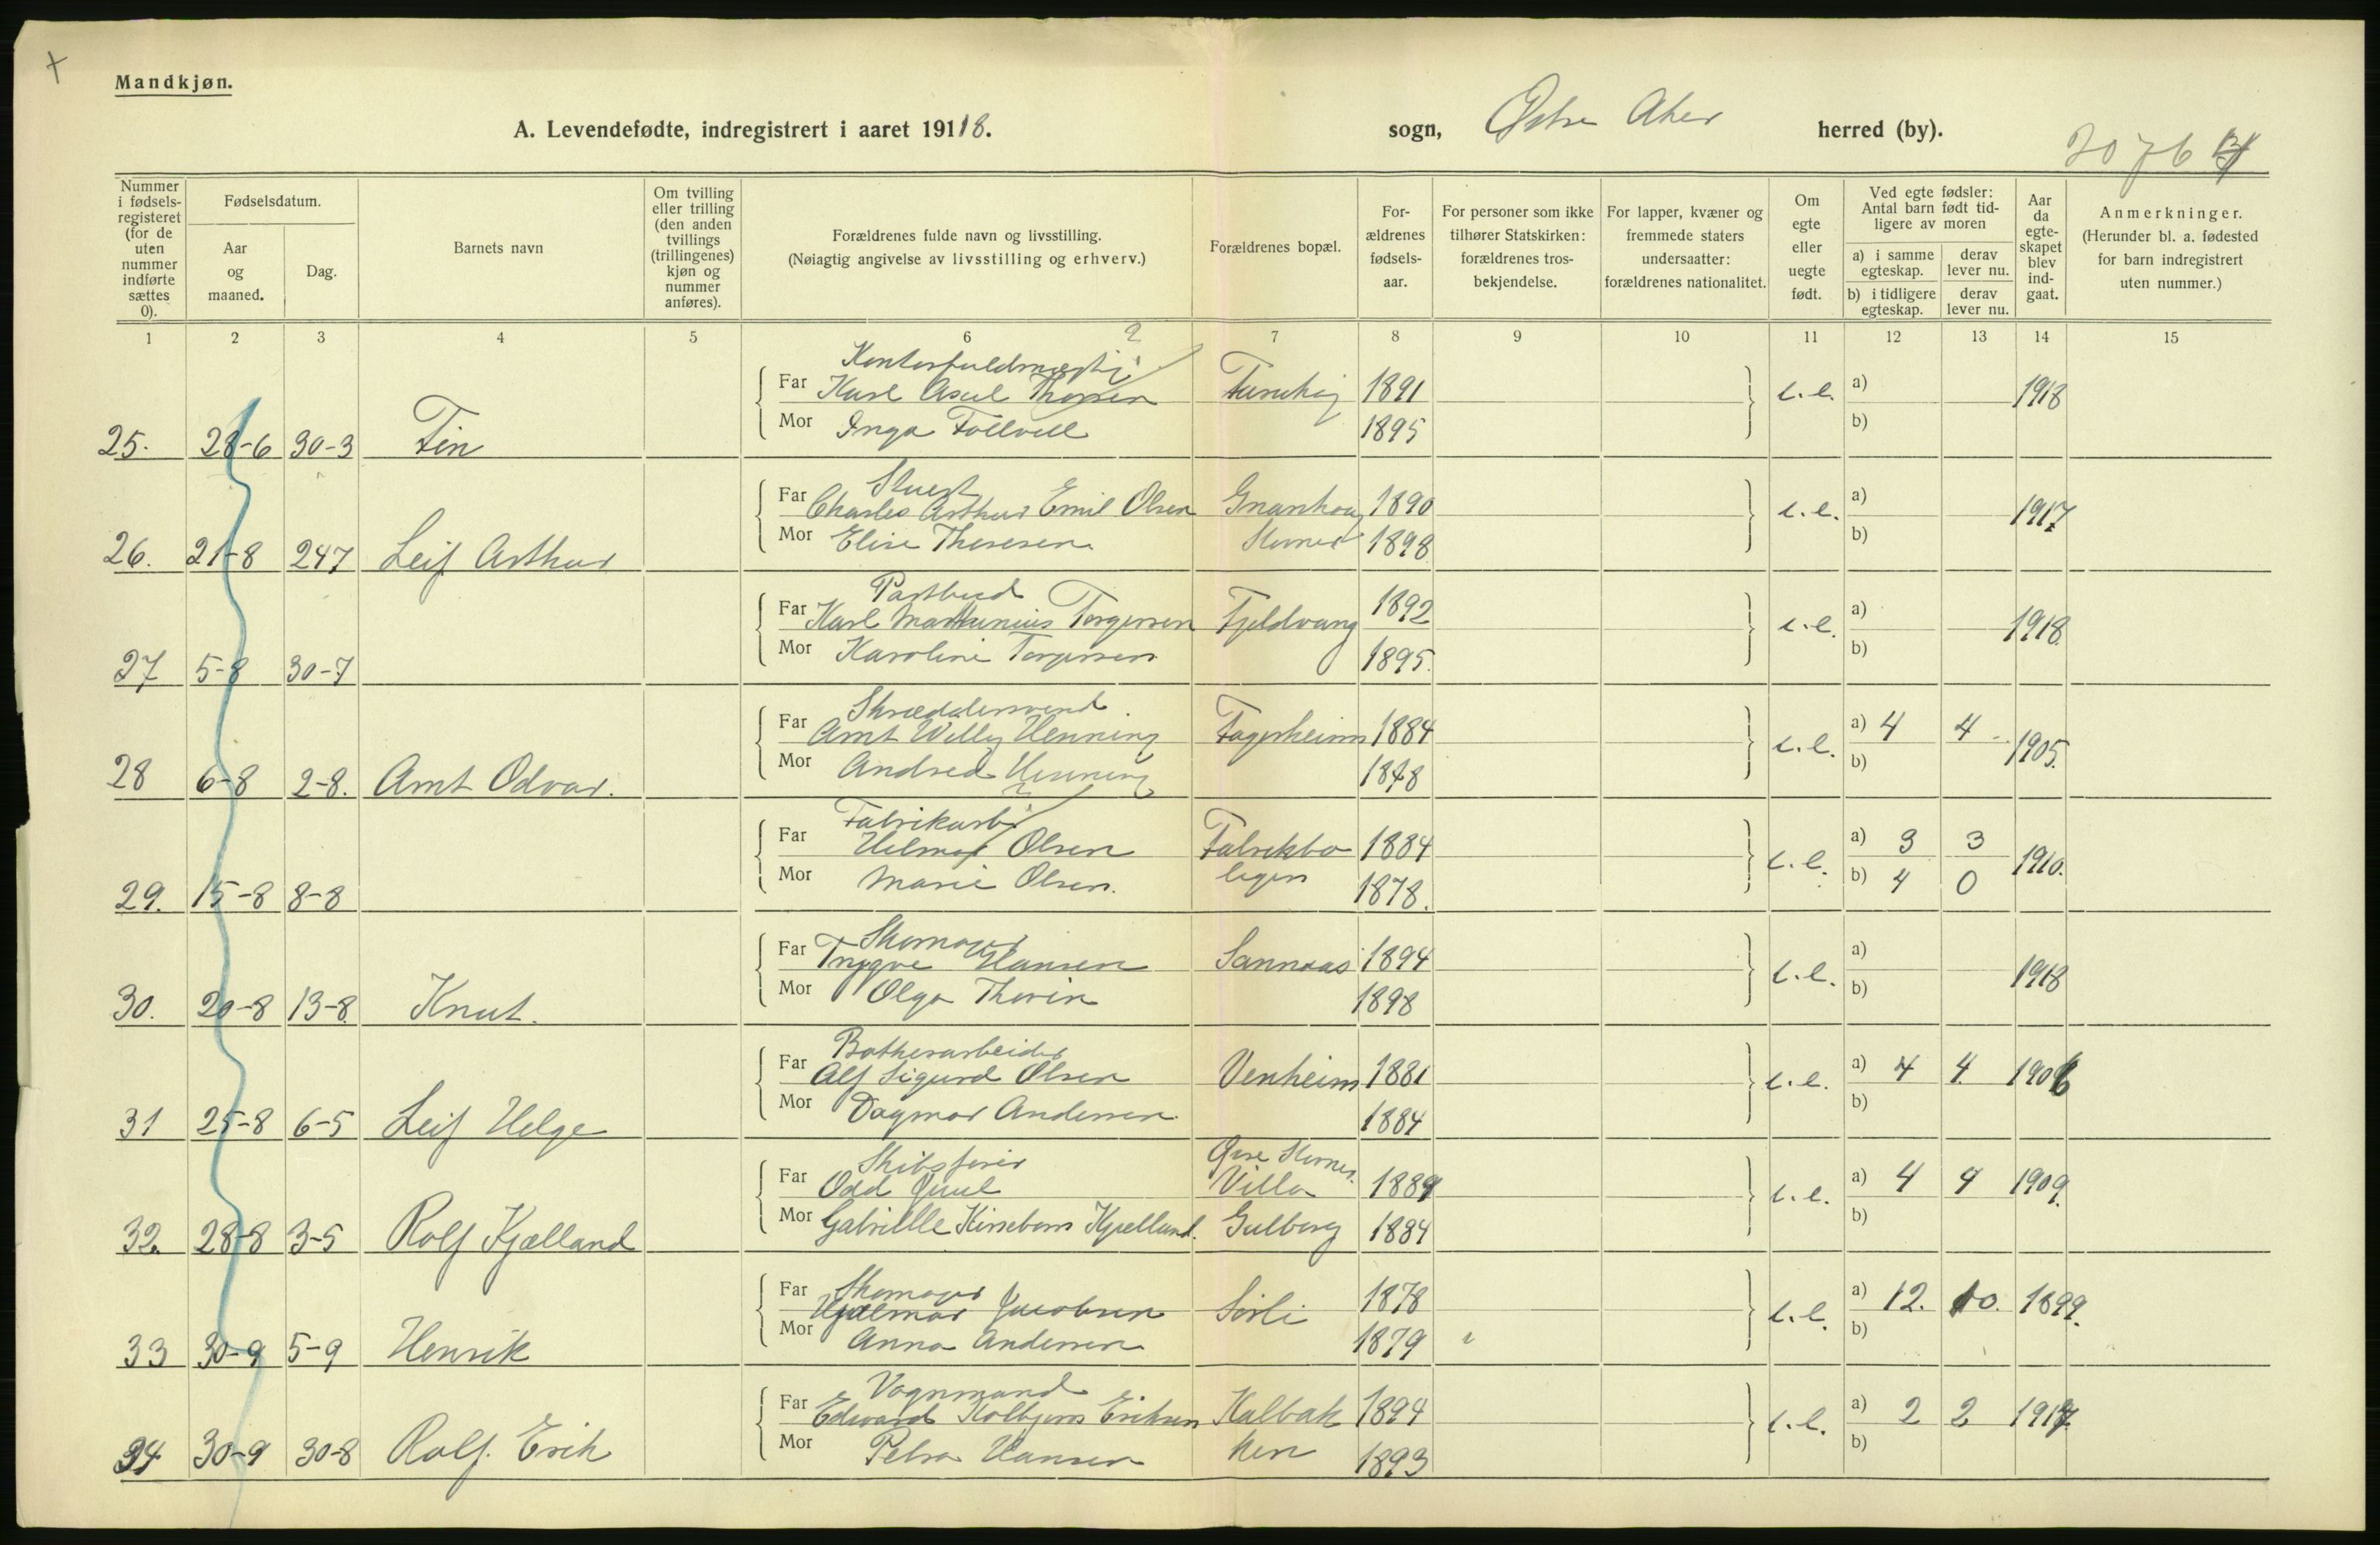 Mandkjøn.
A. Levendefødte, indregistrert i aaret 19118. sogn, Østre Aker herred (by).
2076
Nummer i fødsels-registeret (for de uten nummer indførte sættes 0).
Fødselsdatum.
Aar og maaned.
Dag.
Barnets navn
Om tvilling eller trilling (den anden tvillings (trillingenes) kjøn og nummer anføres).
Forældrenes fulde navn og livsstilling.
(Nøiagtig angivelse av livsstilling og erhverv.)
Forældrenes bopæl.
For-ældrenes fødsels-aar.
For personer som ikke tilhører Statskirken: forældrenes tros-bekjendelse.
For lapper, kvæner og fremmede staters undersaatter: forældrenes nationalitet.
Om egte eller uegte født.
Ved egte fødsler: Antal barn født tid-ligere av moren
a) i samme egteskap.
derav lever nu.
b) i tidligere egteskap.
derav lever nu.
Aar da egte-skapet blev ind-gaat.
Anmerkninger.
(Herunder bl. a. fødested for barn indregistrert uten nummer.)
1 2 3 4 5 6 7 8 9 10 11 12 13 14 15
Kontorfuldmægtig
Far Karl Axel Thorsen 1891 e.e. a) 1918
Mor Inga Follvell 1895 b)
25. 28-6 30-3 Fin
Stuert
Far Charles Arthur Emil Olsen Granhoug 1890 e.e. a) 1917
Mor Elise Theresen 1898 b)
26. 21-8 247 Leif Arthur
Postbud
Far Karl Marthinius Torgersen Fjeldvang 1892 e.e. a) 1918
Mor Karoline Torgersen 1895. b)
27 5-8 30-7
Skræddersvend
Far Arnt Willy Henning Fagerheim 1884 e.e. a) 4 4 1905.
Mor Andrea Henning 1878 b)
28 6-8 2-8. Arnt Odvar.
Fabrikarb.
Far Hilmar Olsen Fabrikbo 1884 e.e. a) 3 3 1910.
Mor Marie Olsen. ligen 1878. b) 4 0
29. 15-8 8-8
Skomager
Far Trygve Hansen Sannaas 1894 e.e. a) 1918
Mor Olga Thorin 1898 b)
30. 20-8 13-8. Knut.
Far Alf Sigurd Olsen Venheim 1881 e.e. a) 4 4 1906
Mor Dagmar Andersen 1884 b)
31 25-8 6-5 Leif Helge
Skibsfører
Far Odd Juul Villa 1889 e.e. a) 4 4 1909.
Mor Gabrielle Kirsebom Kjælland. Gulberg 1884 b)
32. 28-8 3-5 Rolf Kjælland
Skomager
Far Hjalmar Jacobsen Sørli 1878 e.e. a) 12. 10. 1899.
Mor Anna Andersen 1879 b)
33 30-9 5-9 Henrik
Vognmand
Far Edvard Kolbjørn Eriksen Kalbak 1894 e.e. a) 2 2 1917.
Mor Petra Hansen ken 1893 b)
34 30-9 30-8 Rolf Erik